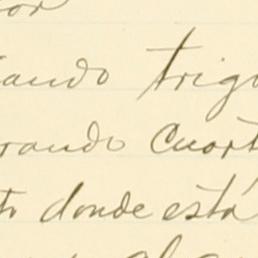 or
ando trigo
rando Cuart
to donde está
al